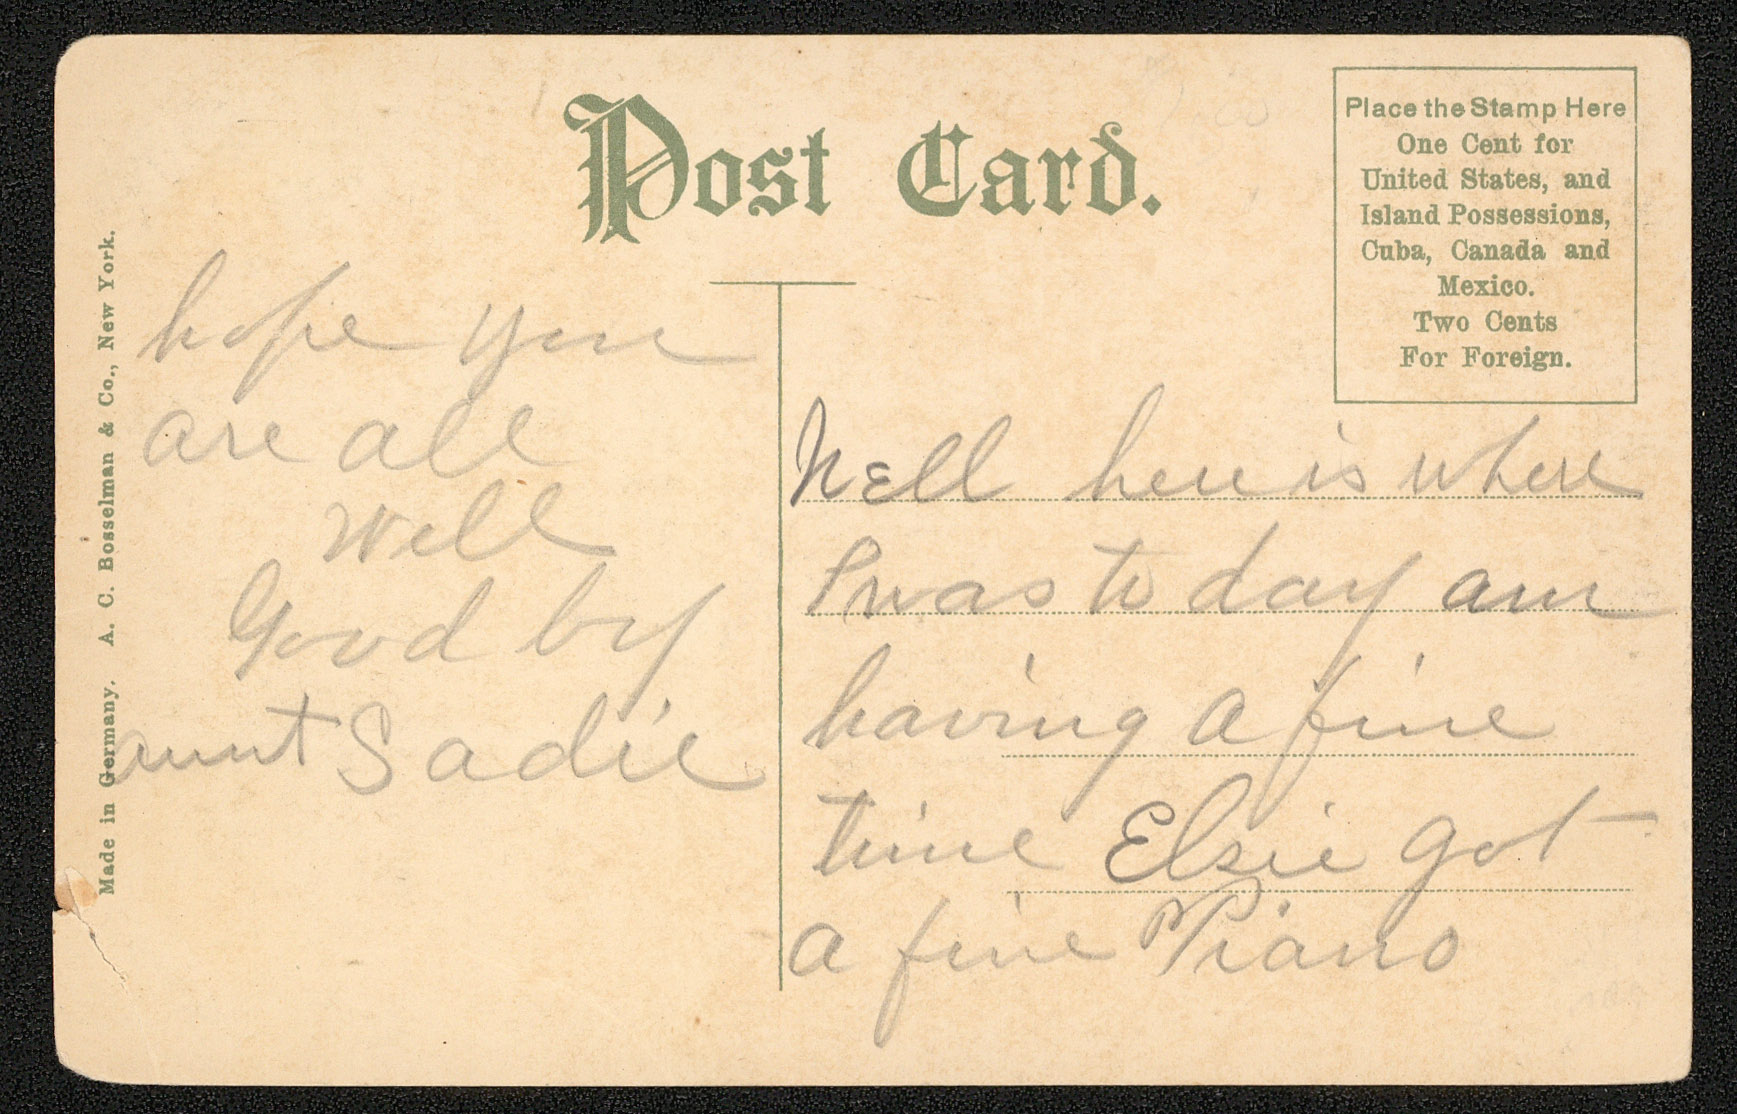 Post Card.
Place the Stamp Here
One Cent for
United States, and
Island Possessions,
Cuba, Canada and
Mexico.
Two Cents
For Foreign.
Made in Germany. A. C. Bosselman & Co., New York.
Nell here is where
I was to day am
having a fine
time Elsie got
a fine Piano
hope you
are all
well
Good by
aunt Sadie